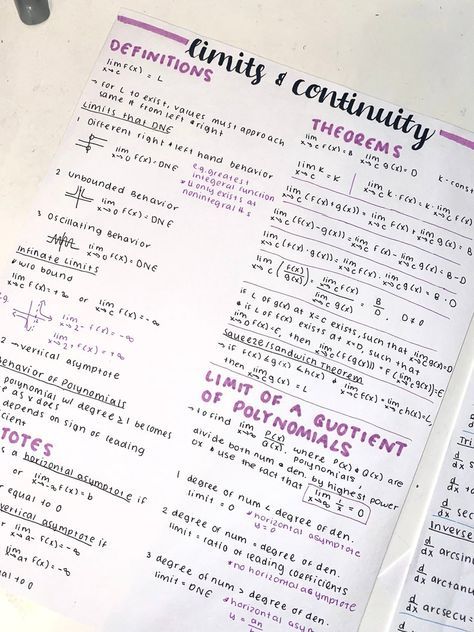 limits & continuity
DEFINITIONS
lim x→c f(x) = L
→ For L to exist, values must approach
same # from left & right
Limits that DNE
1 Different right & left hand behavior
lim x→0 f(x) = DNE
e.g. greatest
integeral function
* L only exists at
nonintegral #s
2 unbounded behavior
lim x→0 f(x) = DNE
3 Oscillating Behavior
lim x→0 f(x) = DNE
Infinate Limits
* w/o bound
lim x→c f(x) = +∞ or lim x→c f(x) = -∞
e.g.
lim x→2⁻ f(x) = -∞
lim x→2⁺ f(x) = +∞
2 → vertical asymptote
Behavior of Polynomials
polynomial w/ degree ≥ 1 becomes
as x does
depends on sign of leading
TOTES
s a horizontal asymptote if
lim x→-∞ f(x) = b
equal to 0
vertical asymptote if
f(x) = -∞
lim x→a⁺ f(x) = -∞
ual to 0
THEOREMS
lim x→c f(x) = B lim x→c g(x) = D
lim x→c k = k
lim x→c k · f(x) = k · lim x→c f(x)
lim x→c (f(x) + g(x)) = lim x→c f(x) + lim x→c g(x) = B
lim x→c (f(x) - g(x)) = lim x→c f(x) - lim x→c g(x) = B - D
lim x→c (f(x) · g(x)) = lim x→c f(x) · lim x→c g(x) = B · D
lim x→c (f(x)/g(x)) = lim x→c f(x) / lim x→c g(x) = B/D, D≠0
is L of g(x) at x=c exists, such that lim x→c g(x) = D
& is L of f(x) exists at x=D, such that
lim x→D f(x) = E, then lim x→c (f(g(x))) = f(lim x→c g(x)) = E
Squeeze/Sandwich Theorem
→ is f(x) ≤ g(x) ≤ h(x) & lim x→c f(x) = lim x→c h(x) = L,
then lim x→c g(x) = L
LIMIT OF A QUOTIENT
OF POLYNOMIALS
→ To find lim x→∞ P(x)/Q(x), where P(x) & Q(x) are
polynomials,
divide both num & den. by highest power
ox & use the fact that lim x→∞ 1/x = 0
1 degree of num < degree of den.
limit = 0
* horizontal asymptote
y = 0
2 degree of num = degree of den.
limit = ratio of leading coefficients
* no horizontal asymptote
3 degree of num > degree of den.
limit = DNE
* horizontal
y = an
Tri
d/dx
d/dx
d/dx
d/dx sec
Inverse
d/dx arcsin
d/dx arctanu
d/dx arcsecu
d/dx